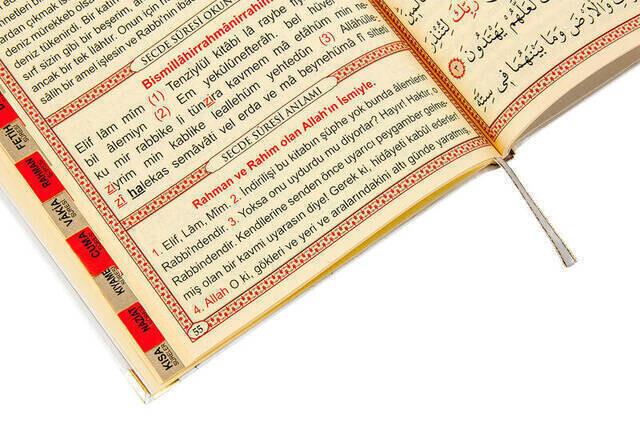 deniz mürekkep olsa
deniz tükenirdi. Bir katı
sırf sizin gibi bir beşerim, an
ancak bir tek ilâhtır. Onun için h
sâlih bir amel işlesin ve Rabbi'nin ibad
SECDE SÛRESİ OKUN
Bismillâhirrahmânirrahîm
Elif lâm mîm (1) Tenzîlül kitâbi lâ raybe
bil âlemiyn (2) Em yekûlûnefterâh. bel hüvel
ku mir rabbike li tünzira kavmem mâ etâhüm min
ziyrim min kablike leallehüm yehtedûn (3) Allâhülle
zî halekas semâvâti vel erda ve mâ beynehümâ fî sitteti
SECDE SÛRESİ ANLAMI
Rahman ve Rahim olan Allah'ın ismiyle.
1. Elif, Lâm, Mim. 2. İndirilişi bu kitabın şüphe yok bunda âlemlerin
Rabbi'ndendir. 3. Yoksa onu uydurdu mu diyorlar? Hayır! Haktır, o
Rabbindendir. Kendilerine senden önce uyarıcı peygamber gelme-
miş olan bir kavmi uyarasın diye! Gerek ki, hidâyeti kabûl ederler!
4. Allah O ki, gökleri ve yeri ve aralarındakini altı günde yaratmış,
55
FETİH
RAHMAN
VAKIA
CUMA
KIYAME
NAZİAT
KISA
SURELER
رَبِّكَ لِتُنْذِرَ
لَعَلَّهُمْ يَهْتَدُونَ
وَالْاَرْضَ وَمَا بَيْنَهُمَا فِي سِتَّةِ